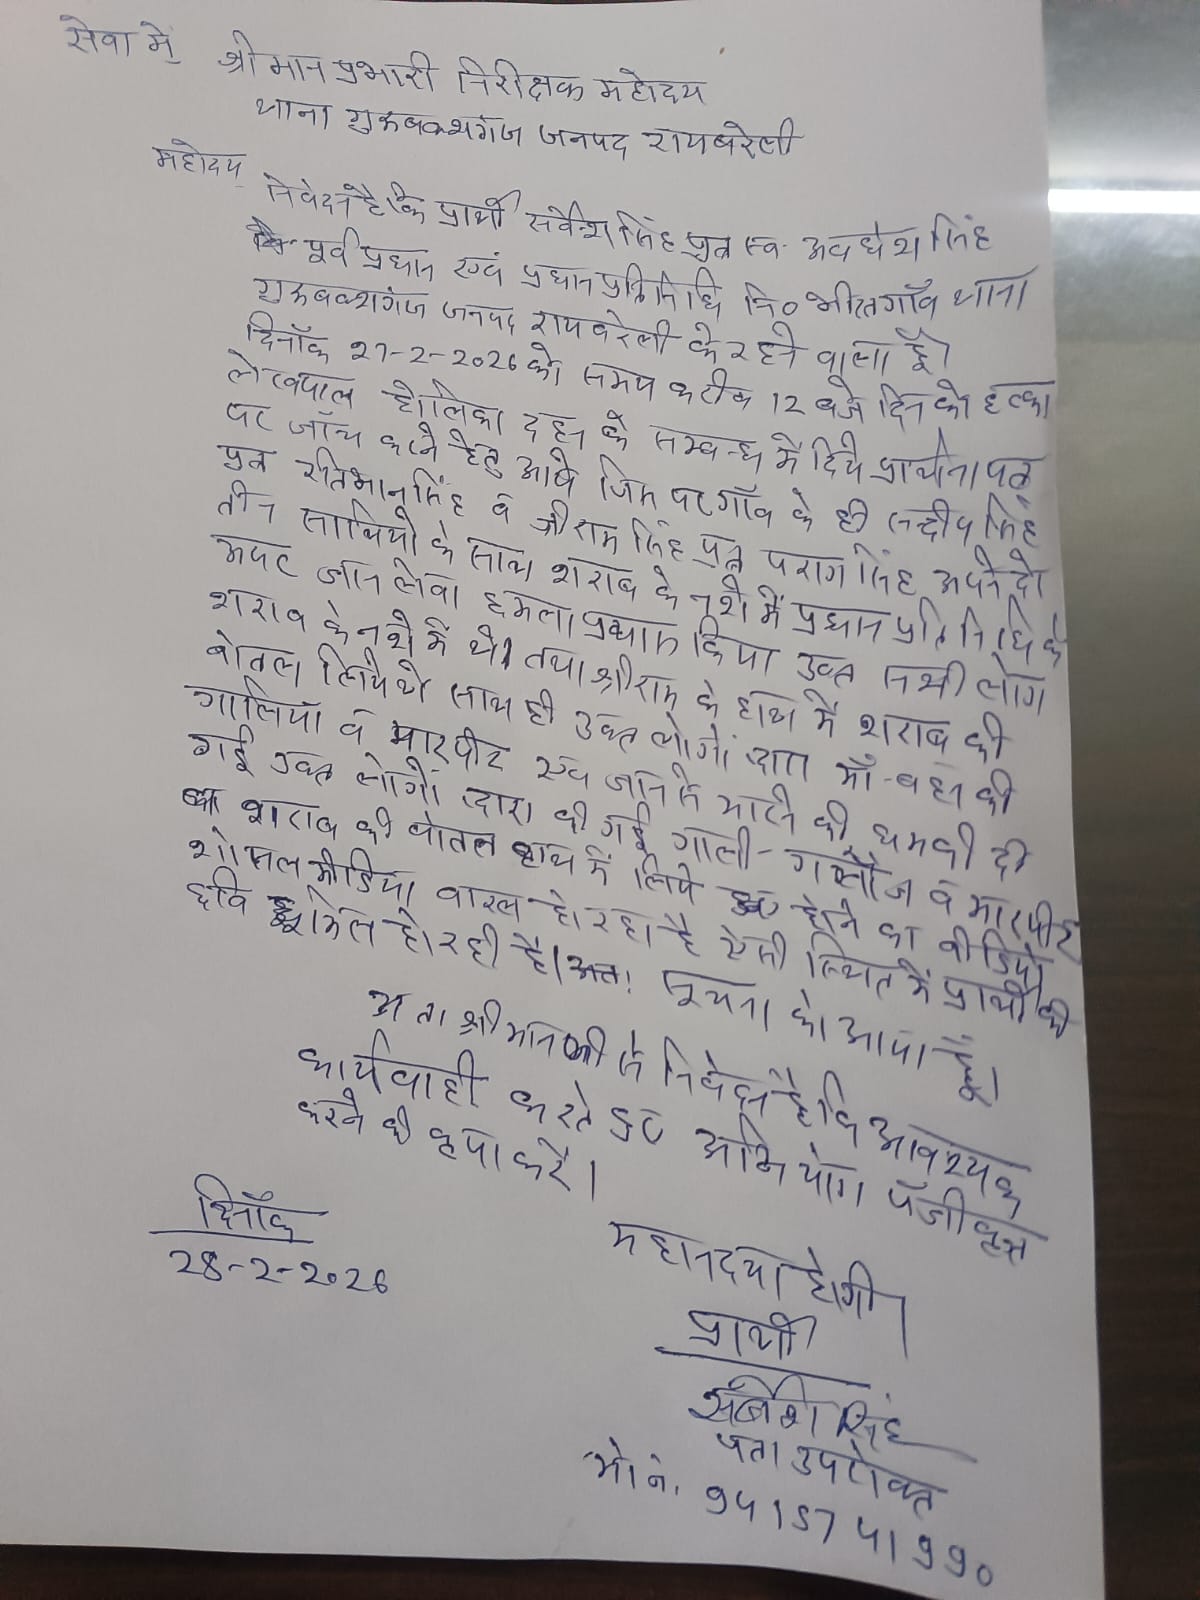 सेवा में
श्रीमान प्रभारी निरीक्षक महोदय
थाना गुरूबक्शगंज जनपद रायबरेली
महोदय
निवेदन है कि प्रार्थी सर्वेश सिंह पुत्र स्व. अवधेश सिंह
पूर्व प्रधान एवं प्रधान प्रतिनिधि नि० भीतगाँव थाना
गुरूबक्शगंज जनपद रायबरेली के रहने वाला हूँ।
दिनाँक 27-2-2026 को समय करीब 12 बजे दिन को हल्का
लेखपाल होलिका दहन के सम्बन्ध में दिये प्रार्थना पत्र
पर जाँच करने हेतु आये जिस पर गाँव के ही सन्दीप सिंह
पुत्र रतिभान सिंह व श्रीराम सिंह पुत्र पराग सिंह अपने दो
तीन साथियों के साथ शराब के नशे में प्रधान प्रतिनिधि के
ऊपर जान लेवा हमला प्रयास किया उक्त सभी लोग
शराब के नशे में थे। तथा श्रीराम के हाथ में शराब की
बोतल लिये थे साथ ही उक्त लोगों द्वारा माँ-बहन की
गालियाँ व मारपीट एवं जान से मारने की धमकी दी
गई उक्त लोगों द्वारा की गई गाली-गलौज व मारपीट
शराब की बोतल हाथ में लिये होने का वीडियो
शोसल मीडिया वारल हो रहा है ऐसी स्थित में प्रार्थी की
छवि धूमिल हो रही है। अतः सूचना को आया हूँ।
अतः श्रीमान जी से निवेदन है कि आवश्यक
कार्यवाही करते हुए अभियोग पंजीकृत
करने की कृपा करें।
महान दया होगी।
दिनाँक
28-2-2026
प्रार्थी
सर्वेश सिंह
पता उपरोक्त
मो नं. 9415741990